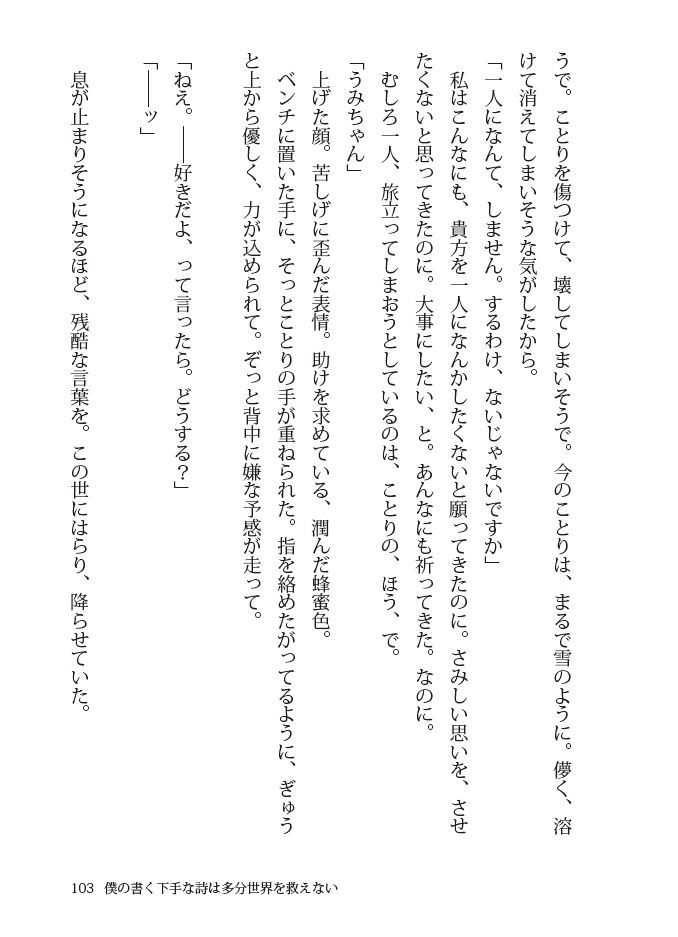 うで。ことりを傷つけて、壊してしまいそうで。今のことりは、まるで雪のように。儚く、溶
けて消えてしまいそうな気がしたから。
「一人になんて、しません。するわけ、ないじゃないですか」
私はこんなにも、貴方を一人になんかしたくないと願ってきたのに。さみしい思いを、させ
たくないと思ってきたのに。大事にしたい、と。あんなにも祈ってきた。なのに。
むしろ一人、旅立ってしまおうとしているのは、ことりの、ほう、で。
「うみちゃん」
上げた顔。苦しげに歪んだ表情。助けを求めている、潤んだ蜂蜜色。
ベンチに置いた手に、そっとことりの手が重ねられた。指を絡めたがってるように、ぎゅう
と上から優しく、力が込められて。ぞっと背中に嫌な予感が走って。
「ねえ。――好きだよ、って言ったら。どうする？」
「――ッ」
息が止まりそうになるほど、残酷な言葉を。この世にはらり、降らせていた。
103 僕の書く下手な詩は多分世界を救えない